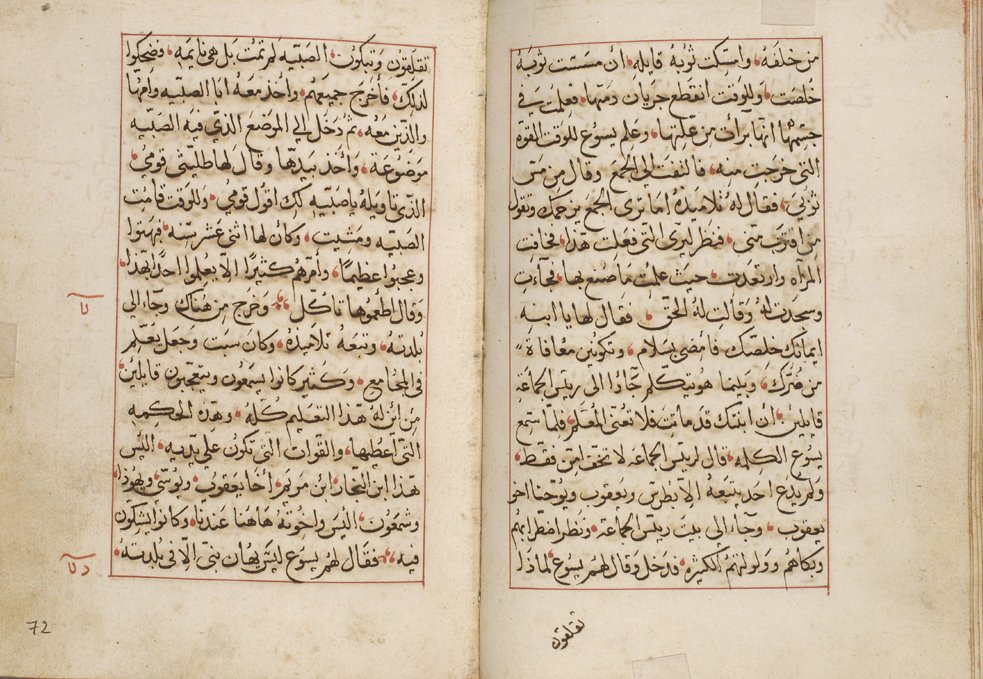 من خلفه، وامسكت ثوبه قايله، ان مسست ثوبه
خلصت، وللوقت انقطع جريان دمها، فعلمت في
جسمها انها برأت من علتها، وعلم يسوع للوقت القوة
التي خرجت منه، فالتفت الي الجمع وقال من مس
ثوبي، فقال له تلاميذه اما تري الجمع يزحمك وتقول
من اقترب مني، فنظر ليري التي فعلت هذا، فخافت
المراه وارتعدت، حيث علمت ما صنع بها، فجآت
وسجدت له وقالت له الحق، فقال لها يا ابنه
ايمانك خلصك فامضي بسلام، وتكوني معافاة
من ضرك، وبينما هو يتكلم جآوا الى ريس الجماعة
قايلين، ان ابنتك قد ماتت فلا تعنى المعلم، فلما سمع
يسوع الكلمه، قال لريس الجماعه لا تخف امن فقط،
ولم يدع احد يتبعه الا بطرس ويعقوب ويوحنا اخو
يعقوب، وجآ الى بيت ريس الجماعه، ونظر اضطرابهم
وبكاهم وولولتهم الكثيره، فدخل وقال لهم يسوع لماذا
تقلقون
تقلقون وتبكون، الصبيه لم تمت بل هي نايمه، فضحكوا
لذلك، فأخرج جميعهم، وأخذ معه ابا الصبيه وامها
والذين معه، ثم دخل الي الموضع الذي فيه الصبيه
موضوعه، واخد بيدها وقال لها طليثى قومي،
الذي تاويله يا صبيه لك اقول قومي، وللوقت قامت
الصبيه ومشيت، وكان لها اثنى عشر سنه، فبهتوا
وعجبوا عظيمًا، وأمرهم كثيرًا الا يعلموا احدًا بهذا،
وقال اطعموها تاكل، وخرج من هناك وجآ الى
بلدته، وتبعه تلاميذه، وكان سبت وجعل يعلم
في المجامع، وكثير كانوا يسمعون ويتعجبون قايلين،
من اين له هذا التعليم كله، وهذه الحكمه
التي اعطيها، والقوات التي تكون علي يديه، اليس
هذا ابن النجار، ابن مريم، أخا يعقوب، ويوسي، ويهوذا،
وشمعون، اليس واخوته هاهنا عندنا، وكانوا يشكون
فيه، فقال لهم يسوع ليس يهان نبي الا في بلدته،
72